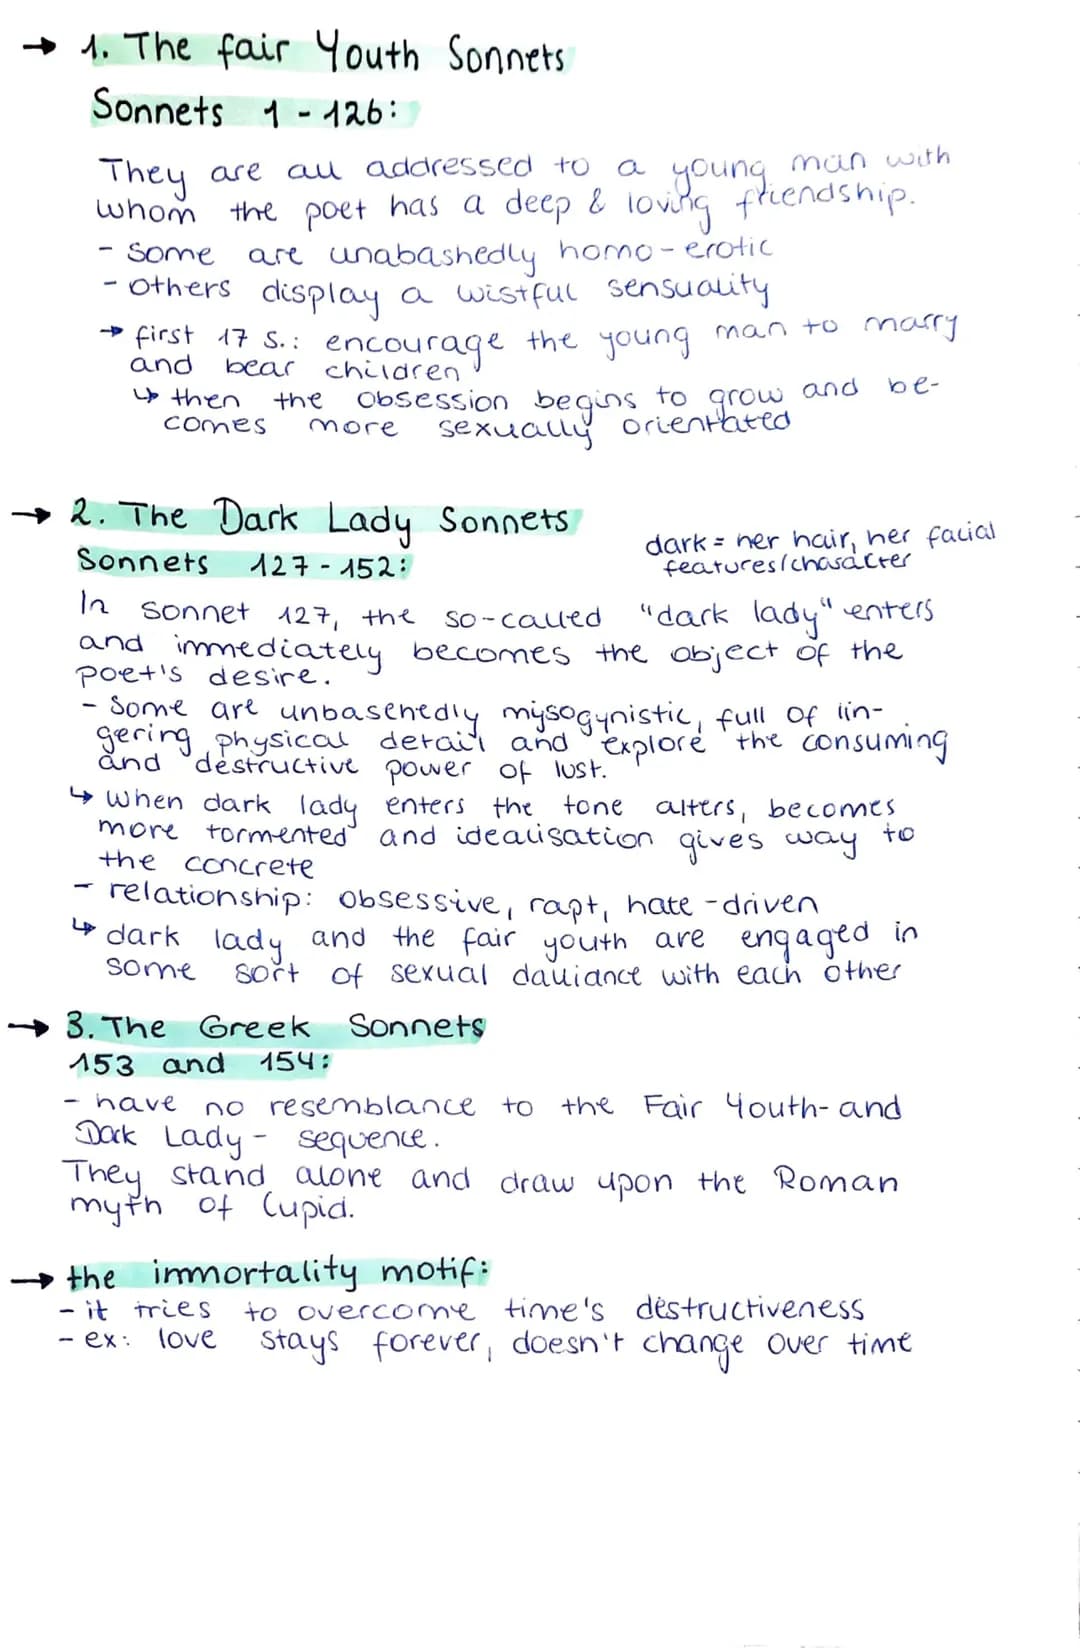 → 1. The fair Youth Sonnets
Sonnets 1 - 126:
They are all addressed to a young man with
whom the poet has a deep & loving friendship.
- some are unabashedly homo-erotic
- others display a wistful sensuality
→ first 17 s.: encourage the young man to marry
and bear children
↳ then the obsession begins to grow and be-
comes more sexually orientated
→ 2. The Dark Lady Sonnets
Sonnets 127 - 152:
dark = her hair, her facial
features/character
In sonnet 127, the so-called "dark lady" enters
and immediately becomes the object of the
poet's desire.
- Some are unbashedly mysogynistic, full of lin-
gering physical detail and explore the consuming
and destructive power of lust.
↳ When dark lady enters the tone alters, becomes
more tormented and idealisation gives way to
the concrete
- relationship: obsessive, rapt, hate-driven
↳ dark lady and the fair youth are engaged in
some sort of sexual dalliance with each other
→ 3. The Greek Sonnets
153 and 154:
- have no resemblance to the Fair Youth- and
Dark Lady- sequence.
They stand alone and draw upon the Roman
myth of Cupid.
→ the immortality motif:
- it tries to overcome time's destructiveness
- ex: love stays forever, doesn't change over time